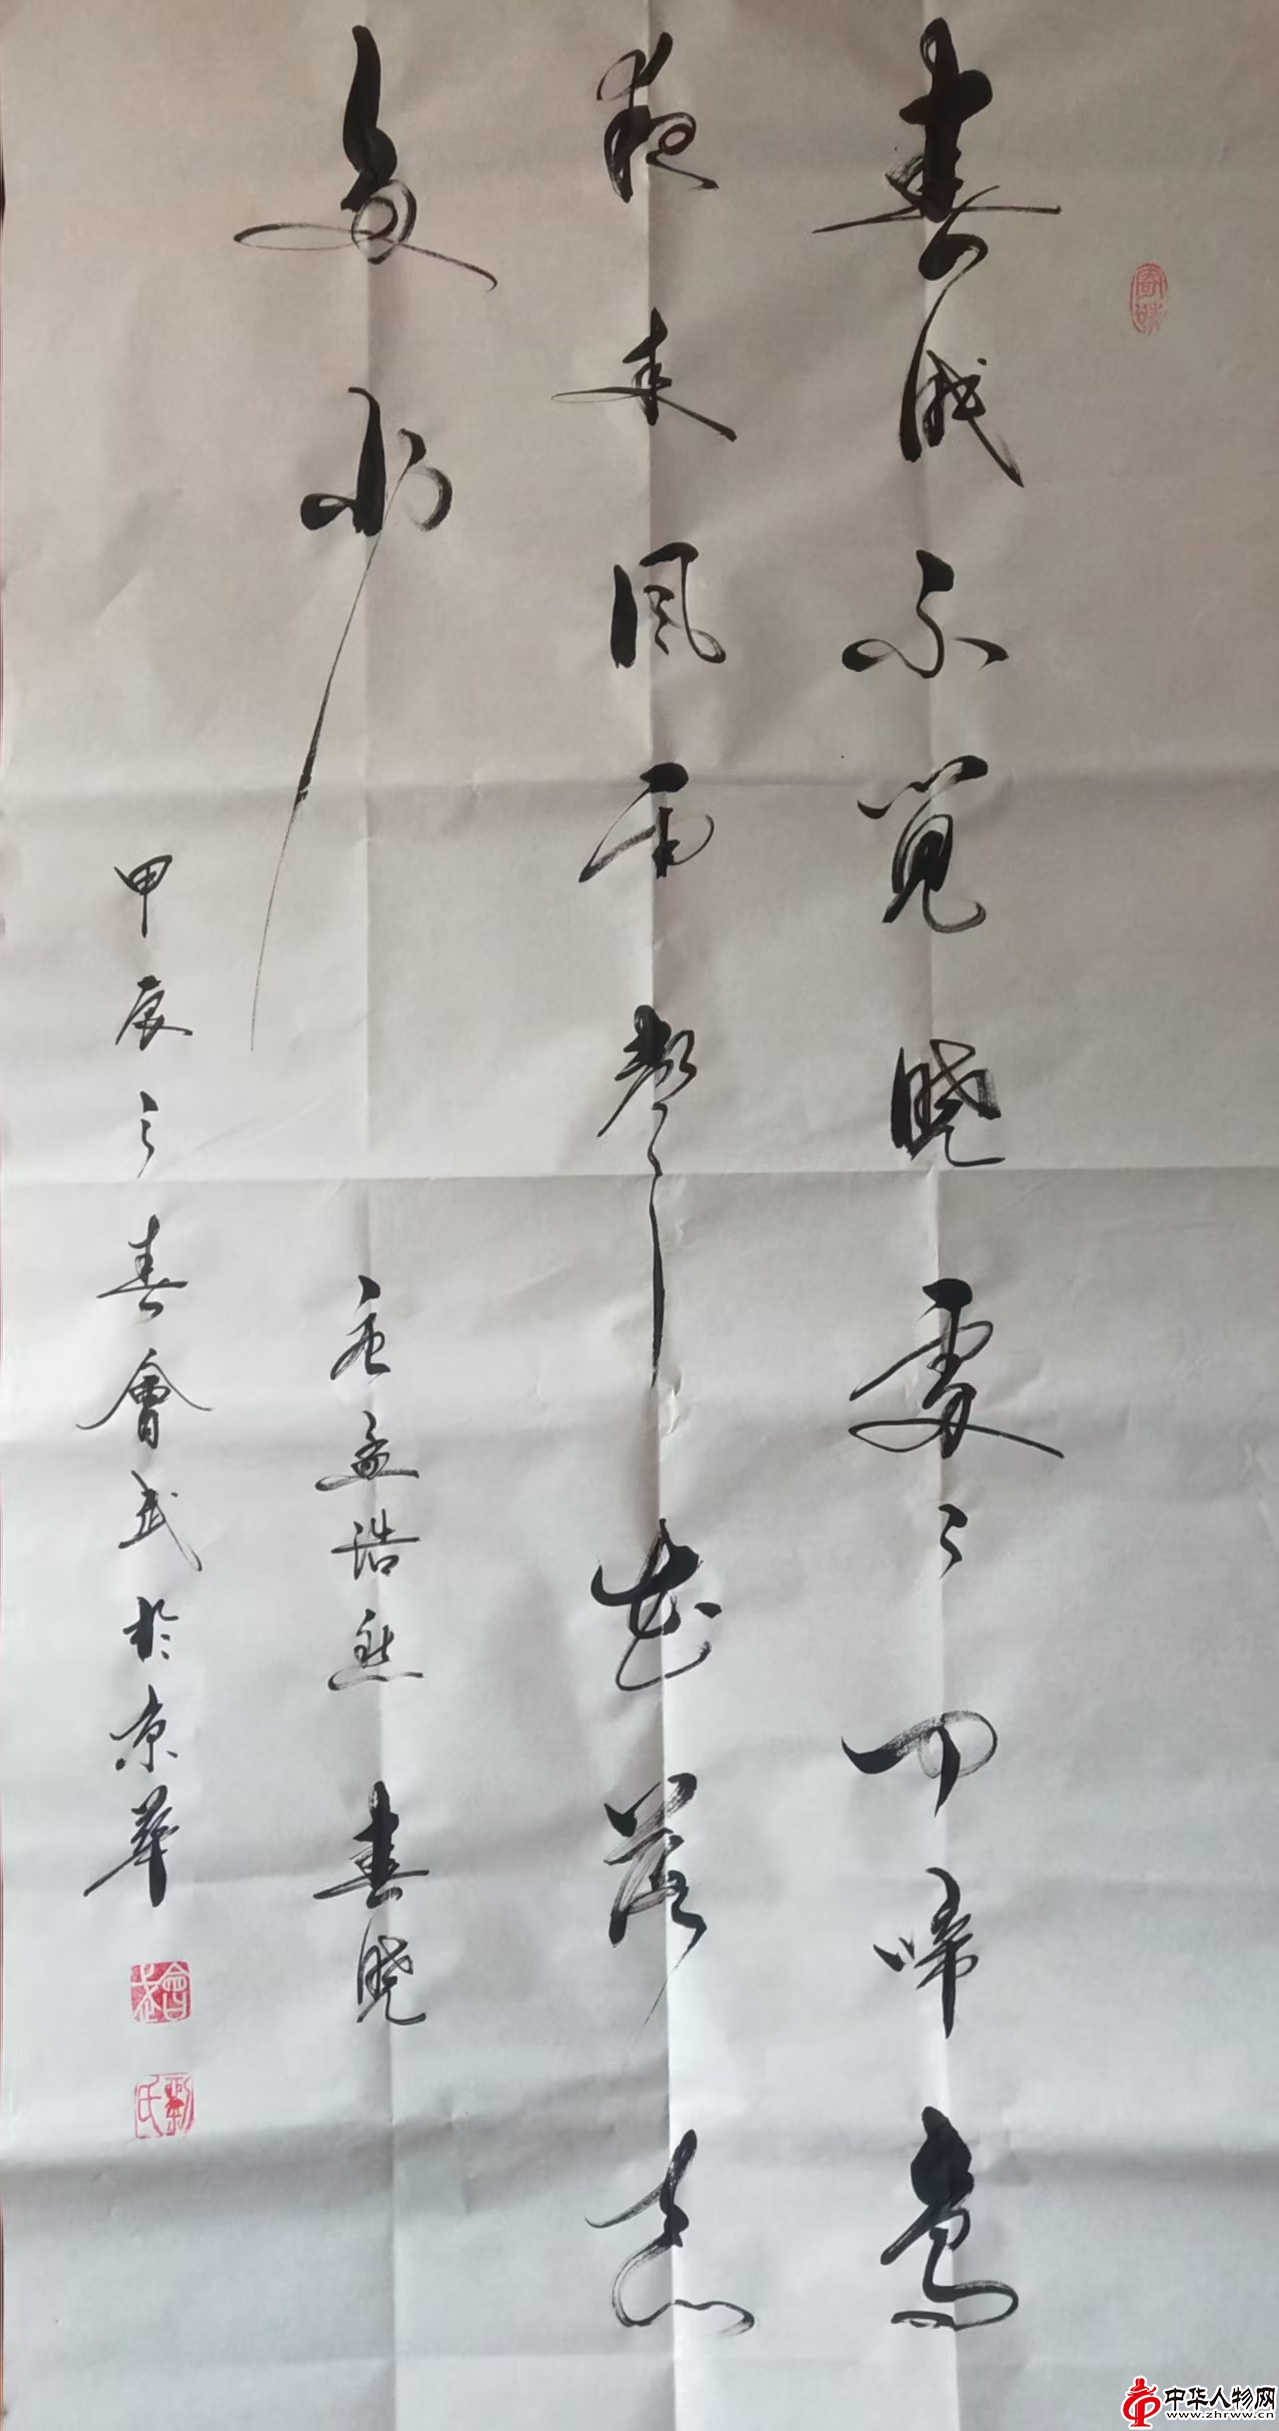 春眠不覺曉處々聞啼鳥
夜来風雨聲花落知
多少
唐孟浩然春曉
甲辰之春會武於京華
會武
劉氏
中华人物网
www.zhrww.cn